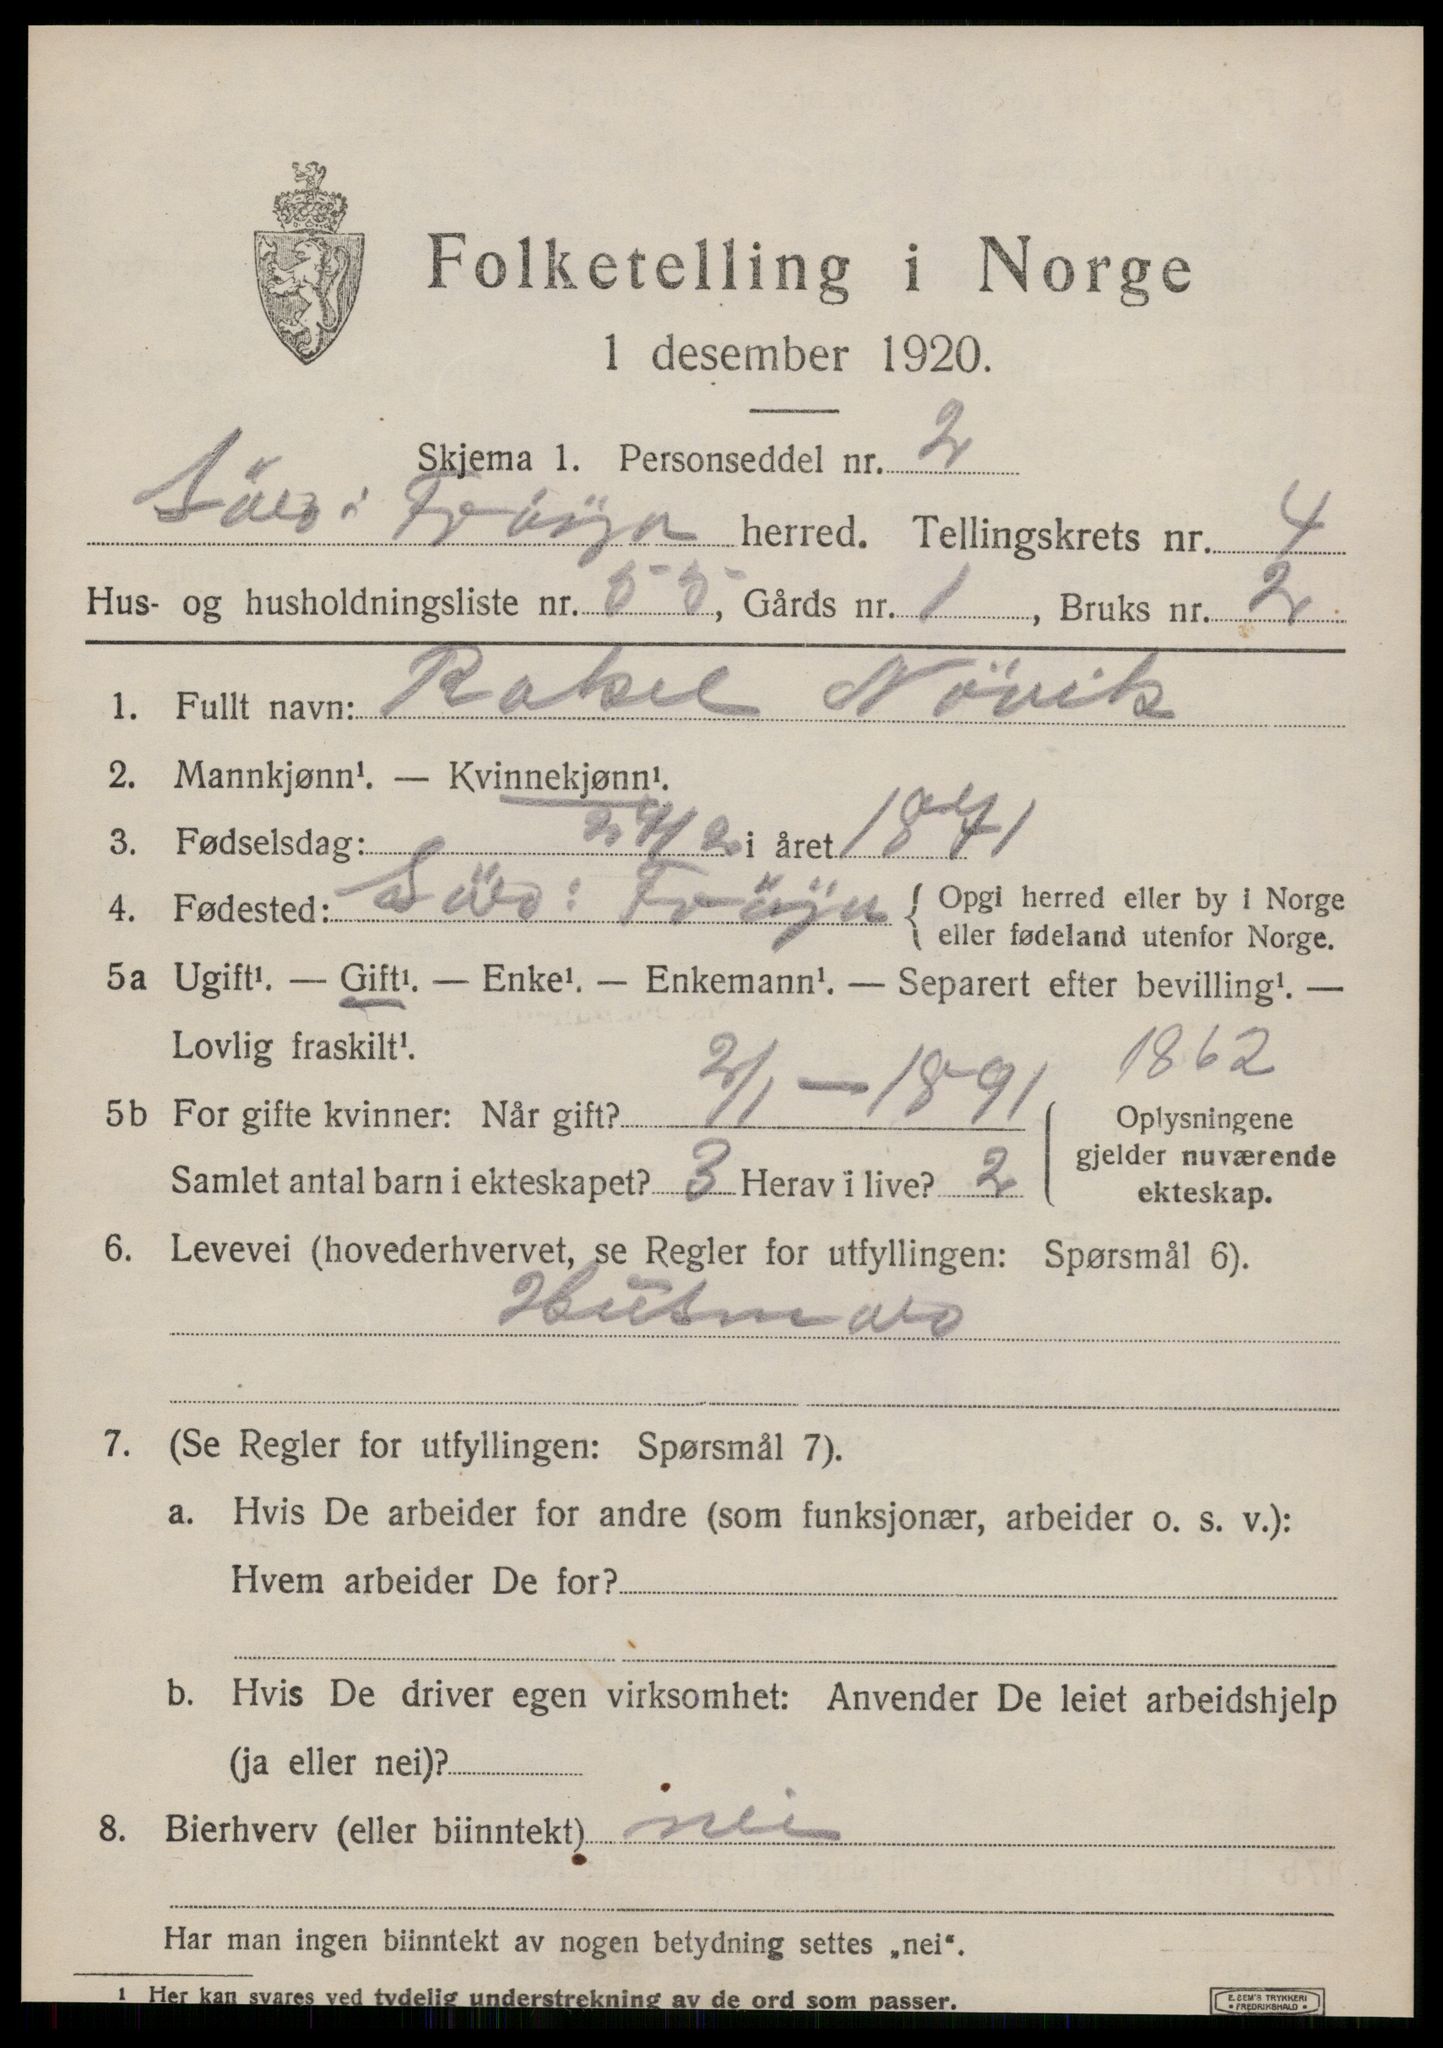 Folketelling i Norge
1 desember 1920.
Skjema 1. Personseddel nr. 2
Sör: Fröya herred. Tellingskrets nr. 4
Hus- og husholdningsliste nr. 55, Gårds nr. 1, Bruks nr. 2
1. Fullt navn: Rakel Növik
2. Mannkjønn¹. — Kvinnekjønn¹.
3. Fødselsdag: 24/2 i året 1871
4. Fødested: Sör: Fröya { Opgi herred eller by i Norge
eller fødeland utenfor Norge.
5a Ugift¹. — Gift¹. — Enke¹. — Enkemann¹. — Separert efter bevilling¹. —
Lovlig fraskilt¹.
1862
5b For gifte kvinner: Når gift? 2/1 — 1891
Samlet antal barn i ekteskapet? 3 Herav i live? 2
Oplysningene
gjelder nuværende
ekteskap.
6. Levevei (hovederhvervet, se Regler for utfyllingen: Spørsmål 6).
Husmor
7. (Se Regler for utfyllingen: Spørsmål 7).
a. Hvis De arbeider for andre (som funksjonær, arbeider o. s. v.):
Hvem arbeider De for?
b. Hvis De driver egen virksomhet: Anvender De leiet arbeidshjelp
(ja eller nei)?
8. Bierhverv (eller biinntekt) nei
Har man ingen biinntekt av nogen betydning settes „nei“.
¹ Her kan svares ved tydelig understrekning av de ord som passer.
E. SEM'S TRYKKERI
FREDRIKSHALD